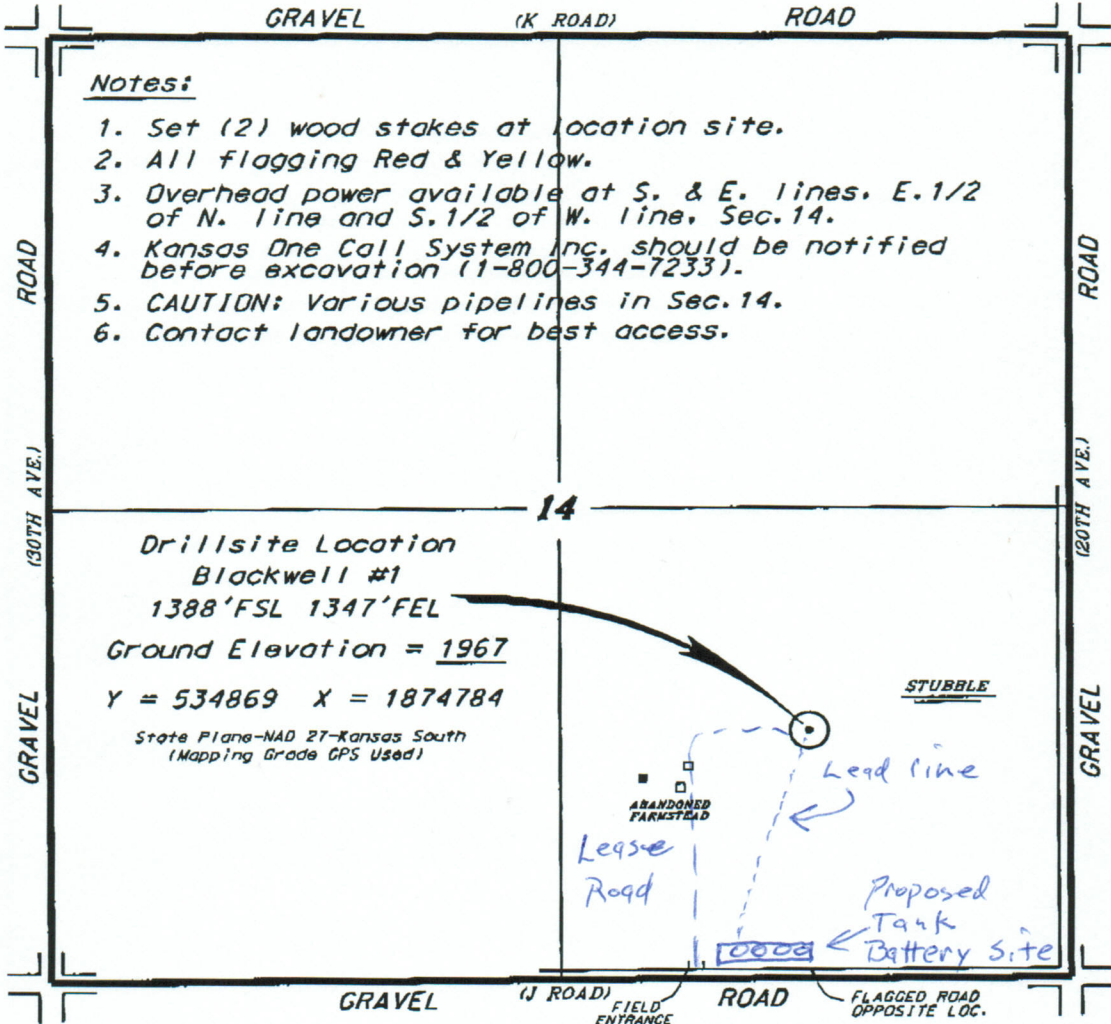 GRAVEL (K ROAD) ROAD
Notes:
1. Set (2) wood stakes at location site.
2. All flagging Red & Yellow.
3. Overhead power available at S. & E. lines. E.1/2
of N. line and S.1/2 of W. line, Sec.14.
4. Kansas One Call System Inc. should be notified
before excavation (1-800-344-7233).
5. CAUTION: Various pipelines in Sec.14.
6. Contact landowner for best access.
ROAD
(30TH AVE.)
GRAVEL
ROAD
(20TH AVE.)
GRAVEL
14
Drillsite Location
Blackwell #1
1388'FSL 1347'FEL
Ground Elevation = 1967
Y = 534869 X = 1874784
State Plane-NAD 27-Kansas South
(Mapping Grade GPS Used)
STUBBLE
Lead line
ABANDONED
FARMSTEAD
Lease
Road
Proposed
Tank
Battery Site
GRAVEL (J ROAD) ROAD
FIELD
ENTRANCE
FLAGGED ROAD
OPPOSITE LOC.